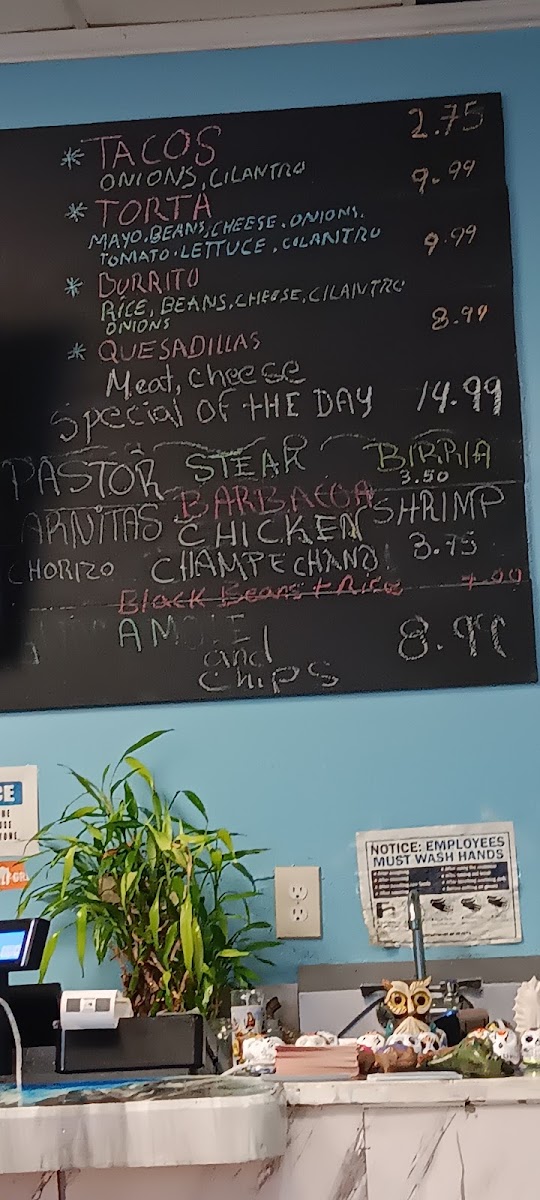 * TACOS 2.75
ONIONS, CILANTRO
* TORTA 9.99
MAYO.BEANS,CHEESE.ONIONS.
TOMATO.LETTUCE.CILANTRO
* BURRITO 9.99
RICE, BEANS,CHEESE,CILANTRO
ONIONS
* QUESADILLAS 8.99
Meat, cheese
Special OF tHE DAY 14.99
PASTOR STEAK BIRRIA
3.50
ARNITAS BARBACOA SHRIMP
CHICKEN
CHORIZO CHAMPECHANO 3.75
Black Beans + Rice
AMOLE 8.99
and
Chips
NOTICE: EMPLOYEES
MUST WASH HANDS